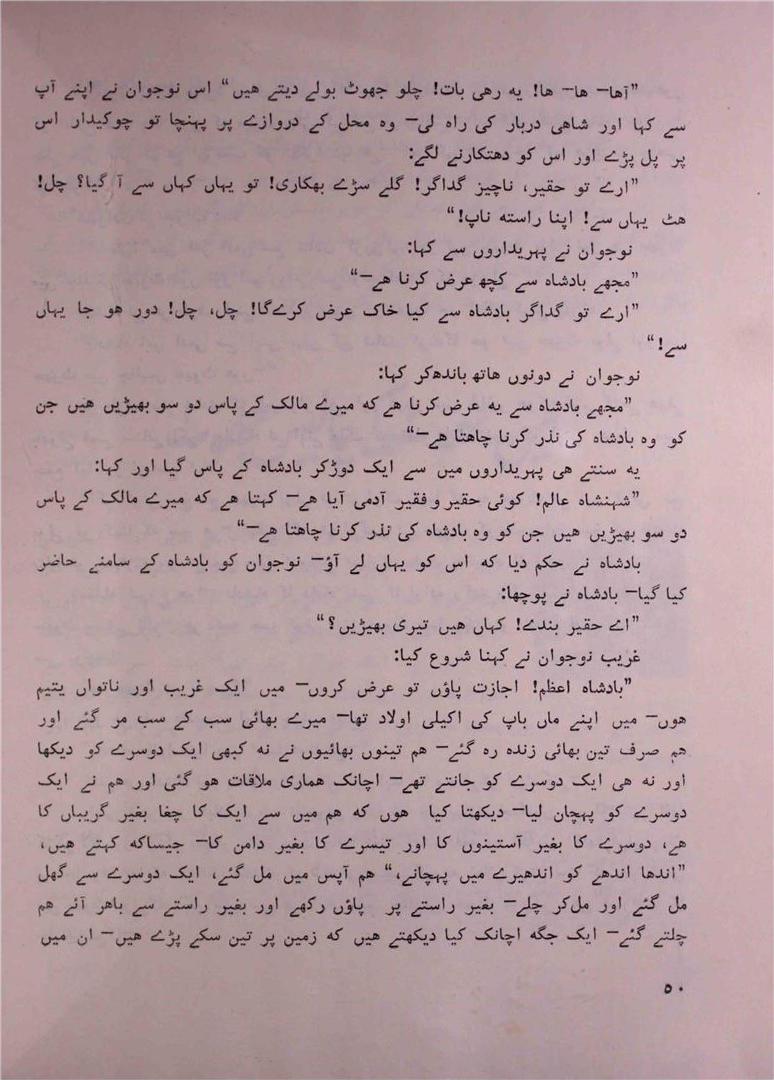 ”آها— ها— ها! یه رهی بات! چلو جھوٹ بولے دیتے هیں“ اس نوجوان نے اپنے آپ
سے کہا اور شاهی دربار کی راہ لی— وہ محل کے دروازے پر پہنچا تو چوکیدار اس
پر پل پڑے اور اس کو دھتکارنے لگے:
”ارے تو حقیر، ناچیز گداگر! گلے سڑے بھکاری! تو یہاں کہاں سے آ گیا؟ چل!
هٹ یہاں سے! اپنا راستہ ناپ!“
نوجوان نے پہریداروں سے کہا:
”مجھے بادشاہ سے کچھ عرض کرنا هے—“
”ارے تو گداگر بادشاہ سے کیا خاک عرض کرےگا! چل، چل! دور هو جا یہاں
سے!“
نوجوان نے دونوں هاتھ باندھکر کہا:
”مجھے بادشاہ سے یه عرض کرنا هے که میرے مالک کے پاس دو سو بھیڑیں هیں جن
کو وہ بادشاہ کی نذر کرنا چاهتا هے—“
یه سنتے هی پہریداروں میں سے ایک دوڑکر بادشاہ کے پاس گیا اور کہا:
”شہنشاہ عالم! کوئی حقیر و فقیر آدمی آیا هے— کہتا هے که میرے مالک کے پاس
دو سو بھیڑیں هیں جن کو وہ بادشاہ کی نذر کرنا چاهتا هے—“
بادشاہ نے حکم دیا که اس کو یہاں لے آؤ— نوجوان کو بادشاہ کے سامنے حاضر
کیا گیا— بادشاہ نے پوچھا:
”اے حقیر بندے! کہاں هیں تیری بھیڑیں؟“
غریب نوجوان نے کہنا شروع کیا:
”بادشاہ اعظم! اجازت پاؤں تو عرض کروں— میں ایک غریب اور ناتواں یتیم
هوں— میں اپنے ماں باپ کی اکیلی اولاد تھا— میرے بھائی سب کے سب مر گئے اور
هم صرف تین بھائی زندہ رہ گئے— هم تینوں بھائیوں نے نه کبھی ایک دوسرے کو دیکھا
اور نه هی ایک دوسرے کو جانتے تھے— اچانک هماری ملاقات هو گئی اور هم نے ایک
دوسرے کو پہچان لیا— دیکھتا کیا هوں که هم میں سے ایک کا چغا بغیر گریباں کا
هے، دوسرے کا بغیر آستینوں کا اور تیسرے کا بغیر دامن کا— جیساکه کہتے هیں،
”اندھا اندھے کو اندھیرے میں پہچانے،“ هم آپس میں مل گئے، ایک دوسرے سے گھل
مل گئے اور مل‌کر چلے— بغیر راستے پر پاؤں رکھے اور بغیر راستے سے باهر آئے هم
چلتے گئے— ایک جگه اچانک کیا دیکھتے هیں که زمین پر تین سکے پڑے هیں— ان میں
۵۰